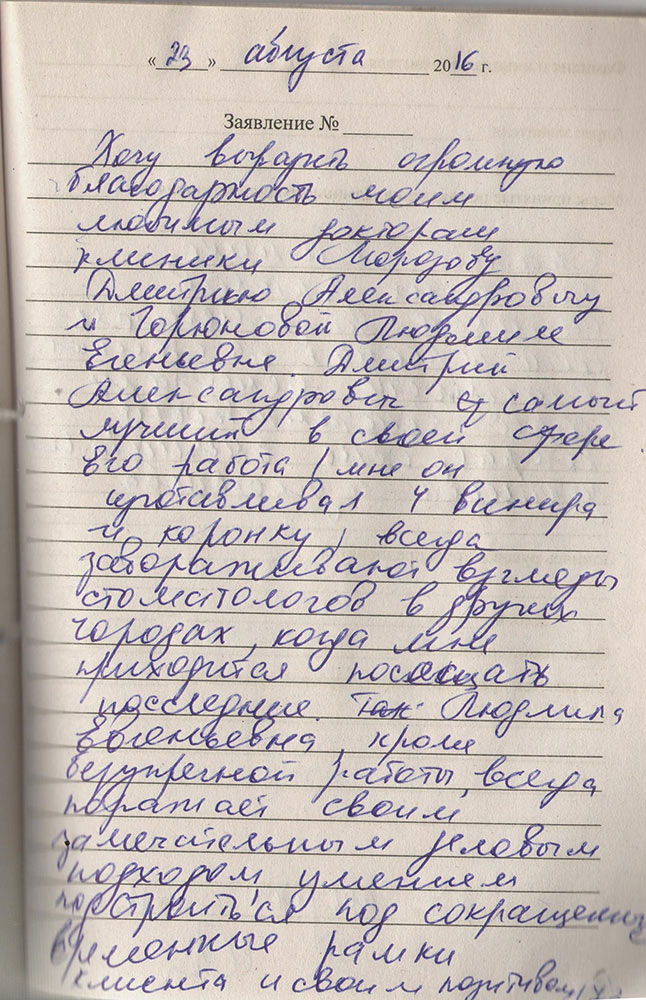 « 23 » августа 2016 г.
Заявление №
Хочу выразить огромную
благодарность моим
любимым докторам
клиники Морозову
Дмитрию Александровичу
и Горюновой Людмиле
Евгеньевне. Дмитрий
Александрович самый
лучший в своей сфере.
Его работа ( мне он
протавливал 4 винира
и коронку) всегда
завораживают взгляды
стоматологов в других
городах, когда мне
приходится посещать
последние. Так Людмила
Евгеньевна, кроме
безупречной работы, всегда
поражает своим
замечательным деловым
подходом, умением
подстроиться под сокращенные
временные рамки
клиента и своим позитивом